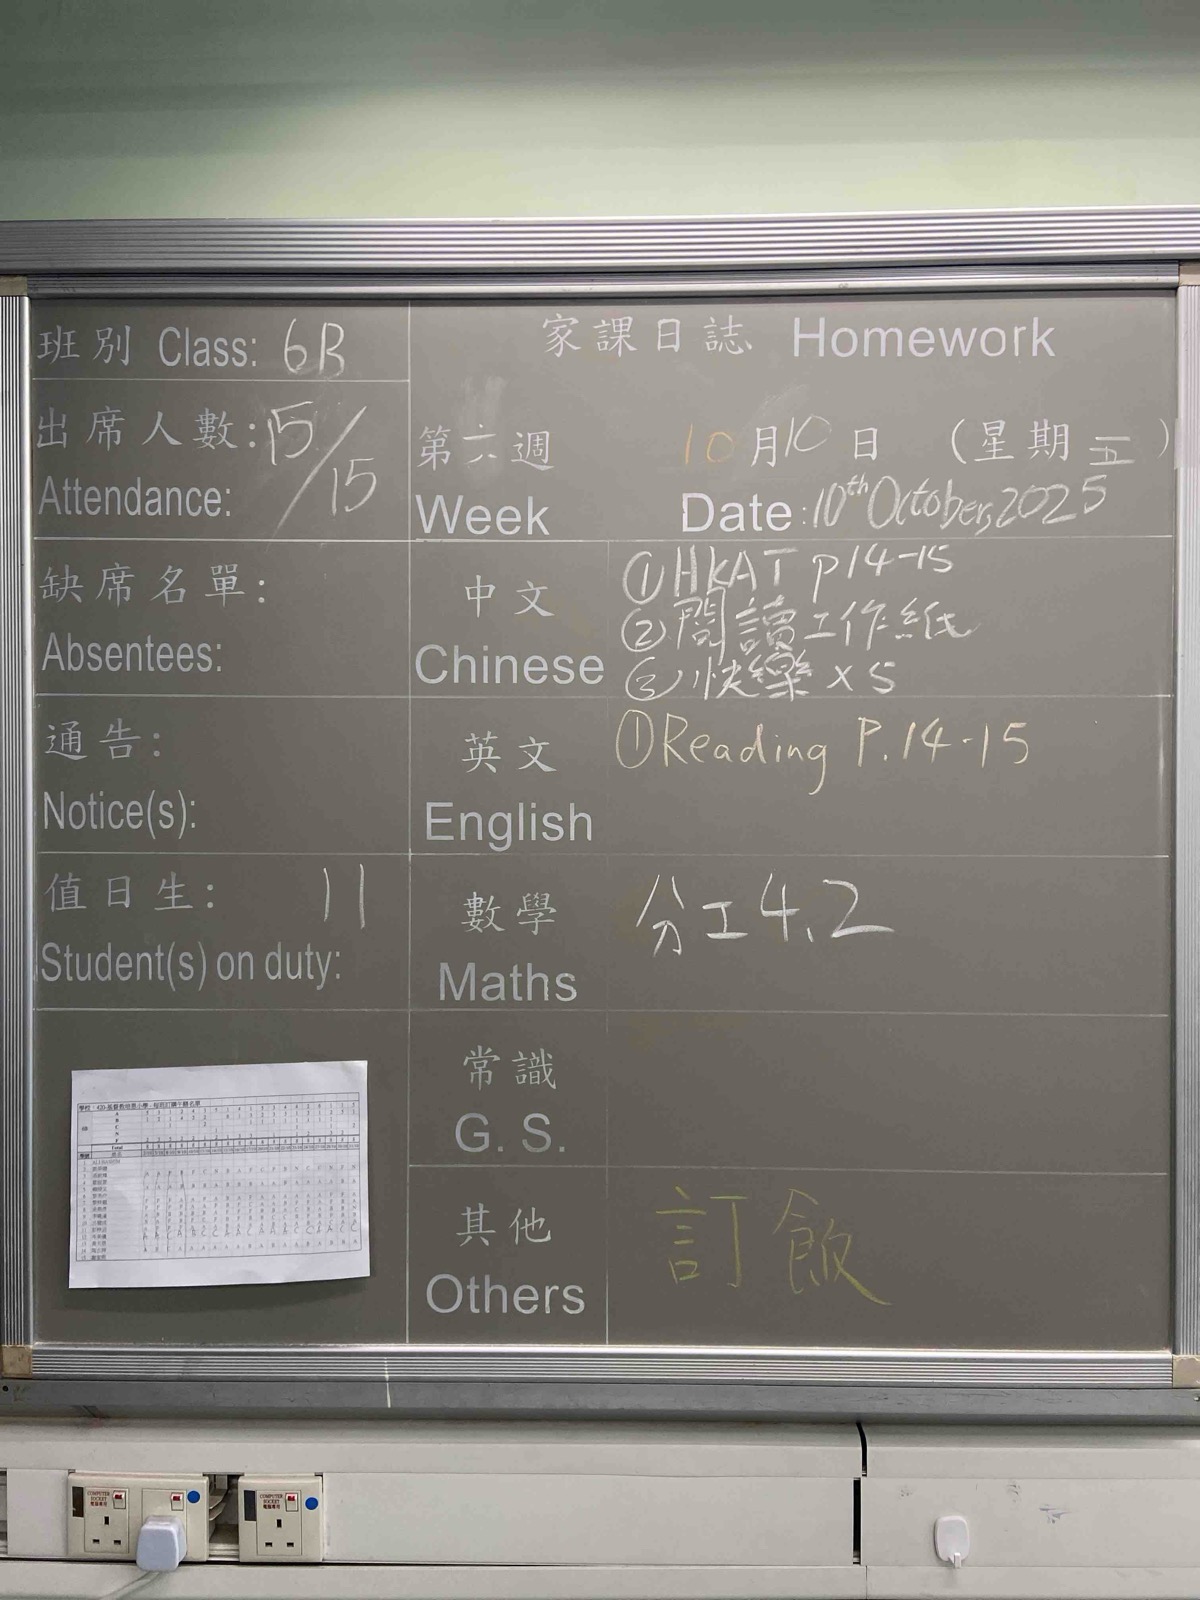 班別 Class: 6B
家課日誌 Homework
出席人數: 15/15
Attendance:
第六週 10月10日 (星期五)
Week Date: 10th October, 2025
缺席名單:
Absentees:
中文
Chinese
①HKAT p14-15
②閱讀工作紙
③快樂 x 5
通告:
Notice(s):
英文
English
①Reading P.14-15
值日生: 11
Student(s) on duty:
數學
Maths
分工4.2
常識
G. S.
其他
Others
訂飯
Total
COMPUTER SOCKET
電腦專用
COMPUTER SOCKET
電腦專用